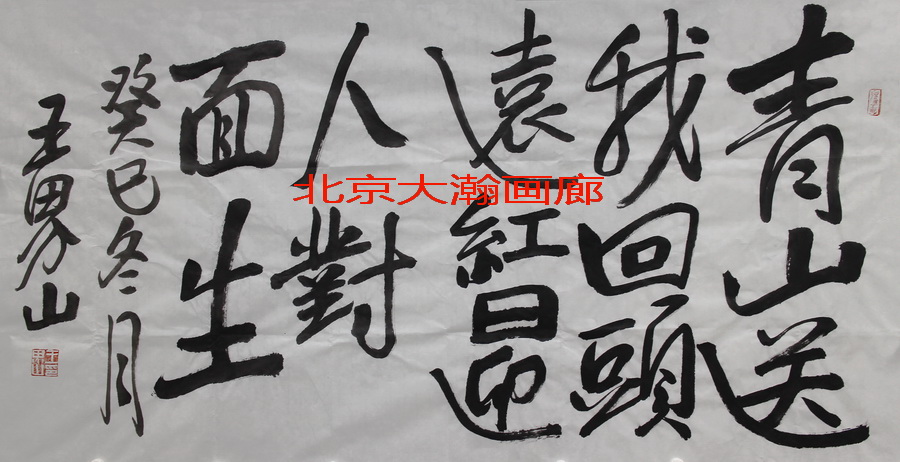 青山送
我回頭
遠紅日迎
人對
面生
癸巳冬月
王界山
北京大瀚画廊